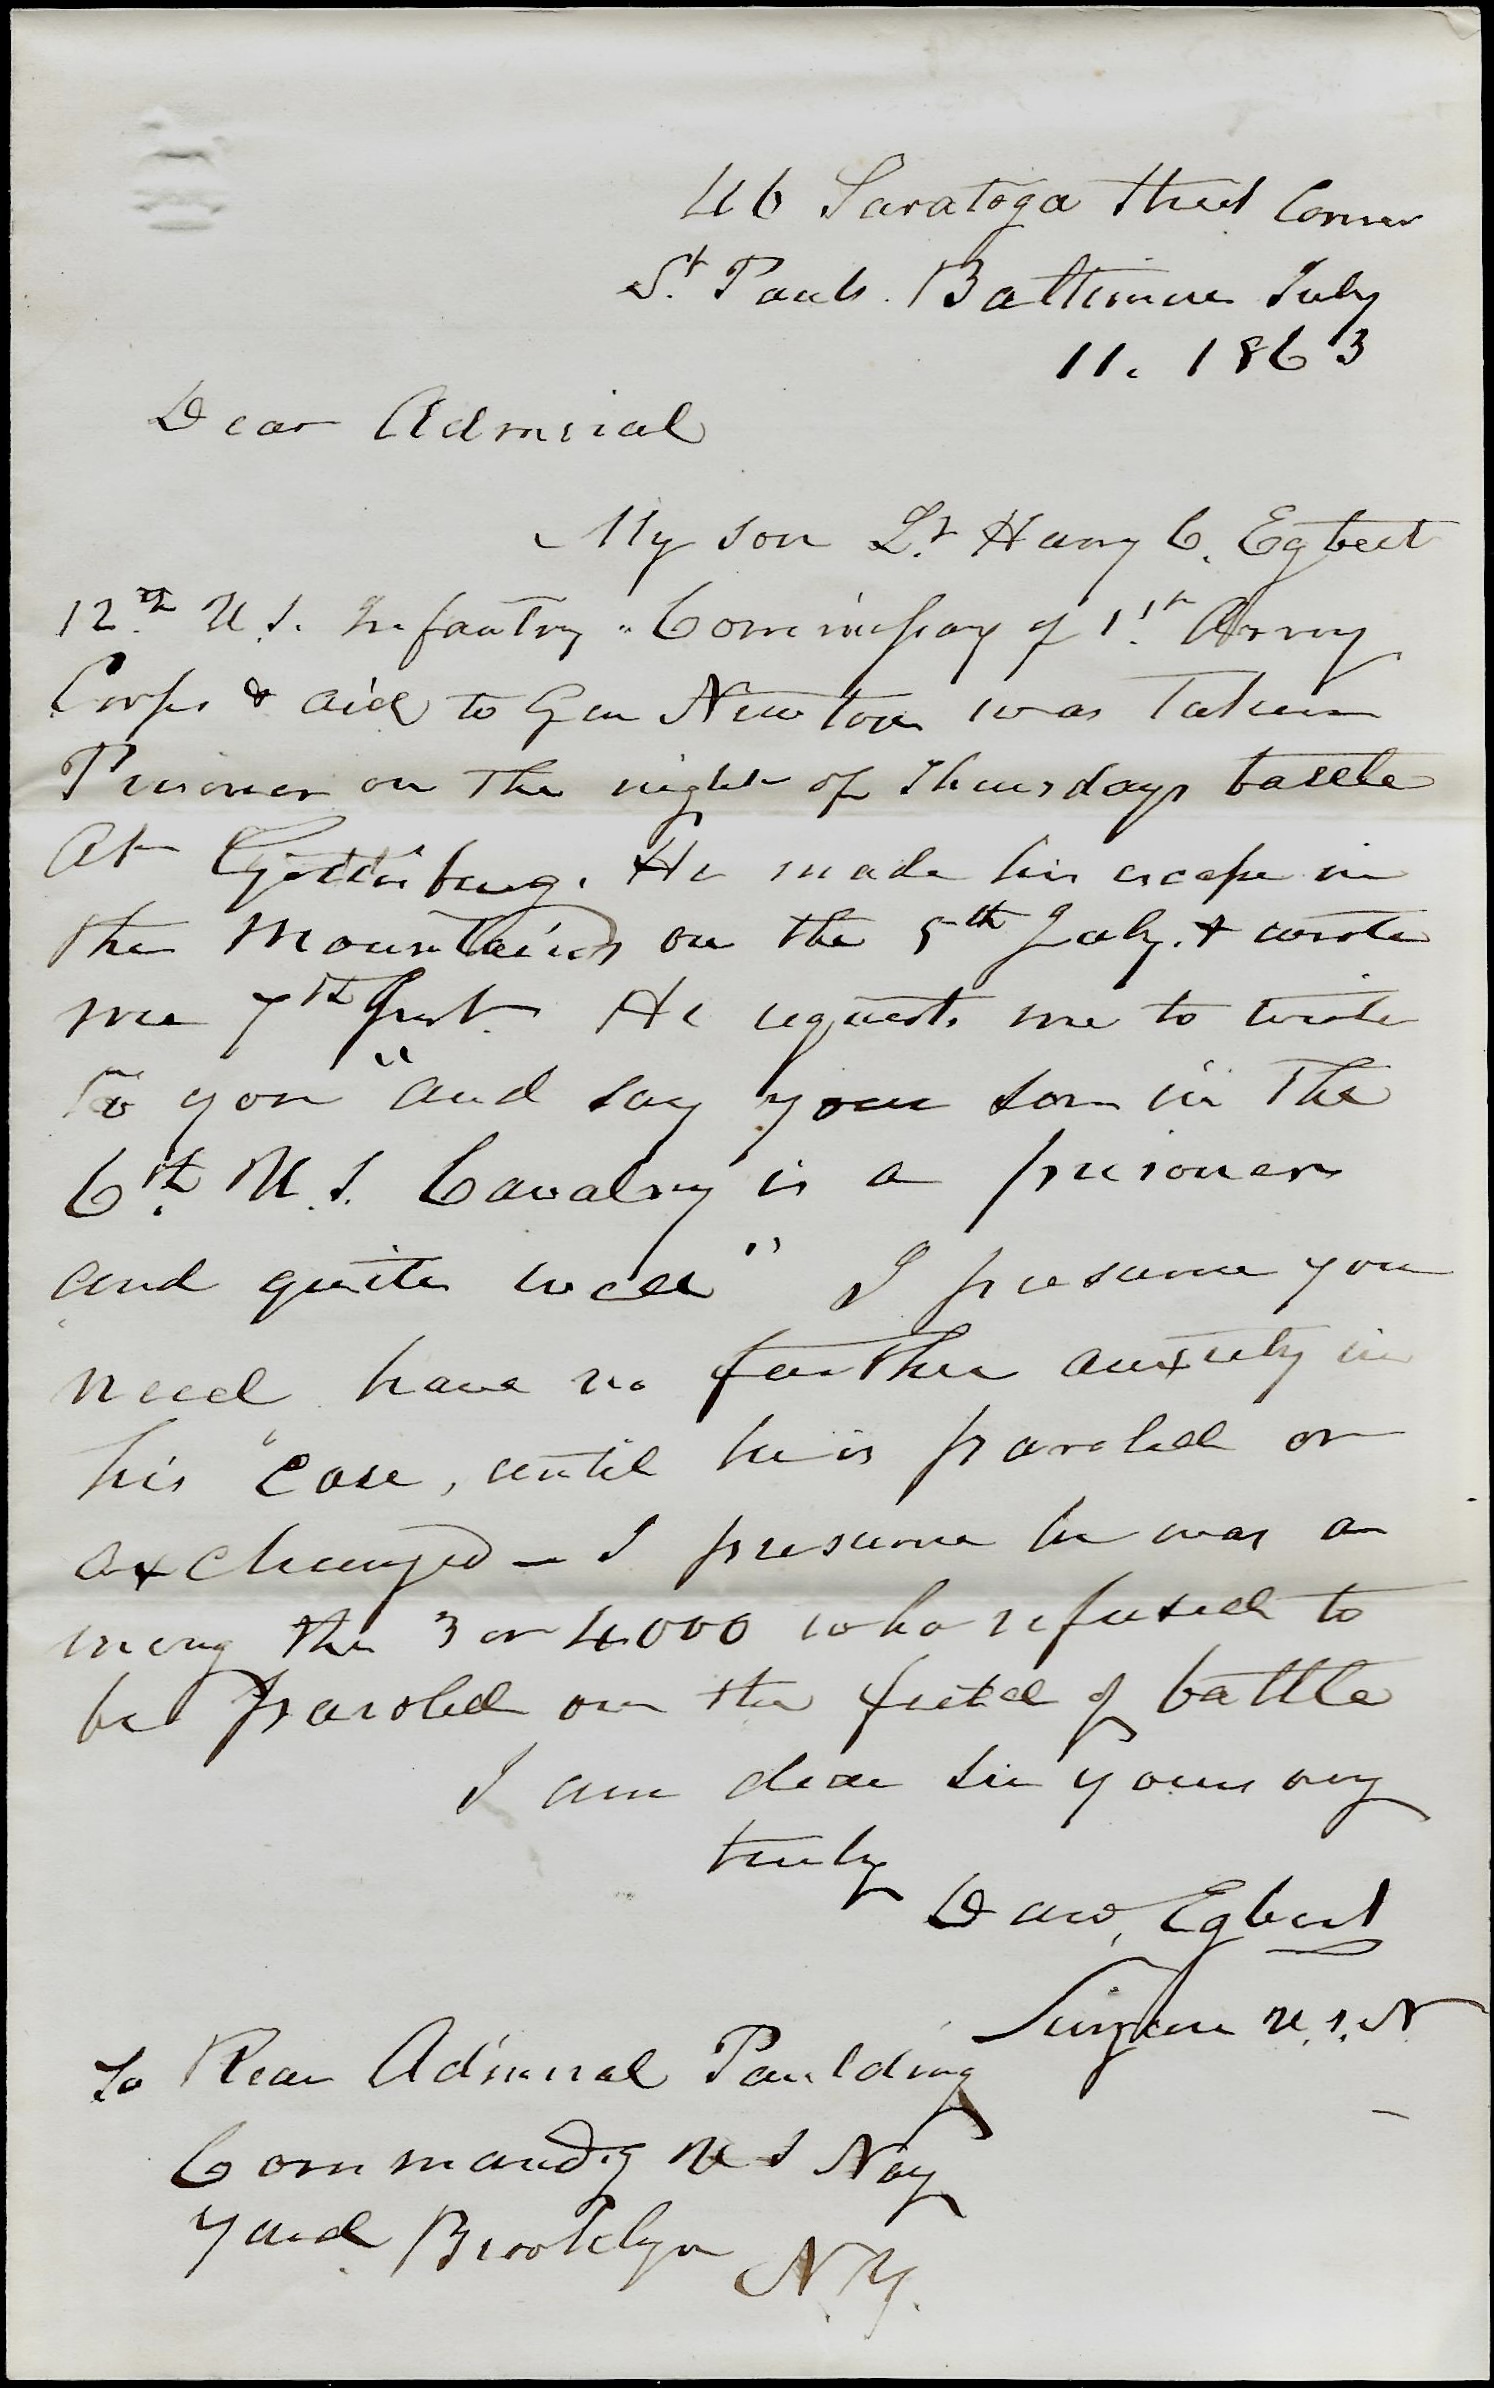 46 Saratoga Street Corner
St. Pauls. Baltimore July
11. 1863
Dear Admiral
My son Lt Harry C. Egbert
12th U.S. Infantry - Commissary of 1st Army
Corps & aid to Gen Newton was taken
Prisoner on the night of Thursdays battle
at Gettisburg. He made his escape in
the mountains on the 5th July. & wrote
me 7th Inst. He requests me to write
to you "and say your son in the
6th U.S. Cavalry is a prisoner
and quite well" I presume you
need have no farther anxiety in
his case, until he is paroled or
exchanged - I presume he was a
mong the 3 or 4000 who refused to
be paroled on the field of battle
I am dear sir yours very
truly
Danl. Egbert
Surgeon U.S.N
To Rear Admiral Paulding
Commandg U S Navy
Yard Brooklyn N.Y.